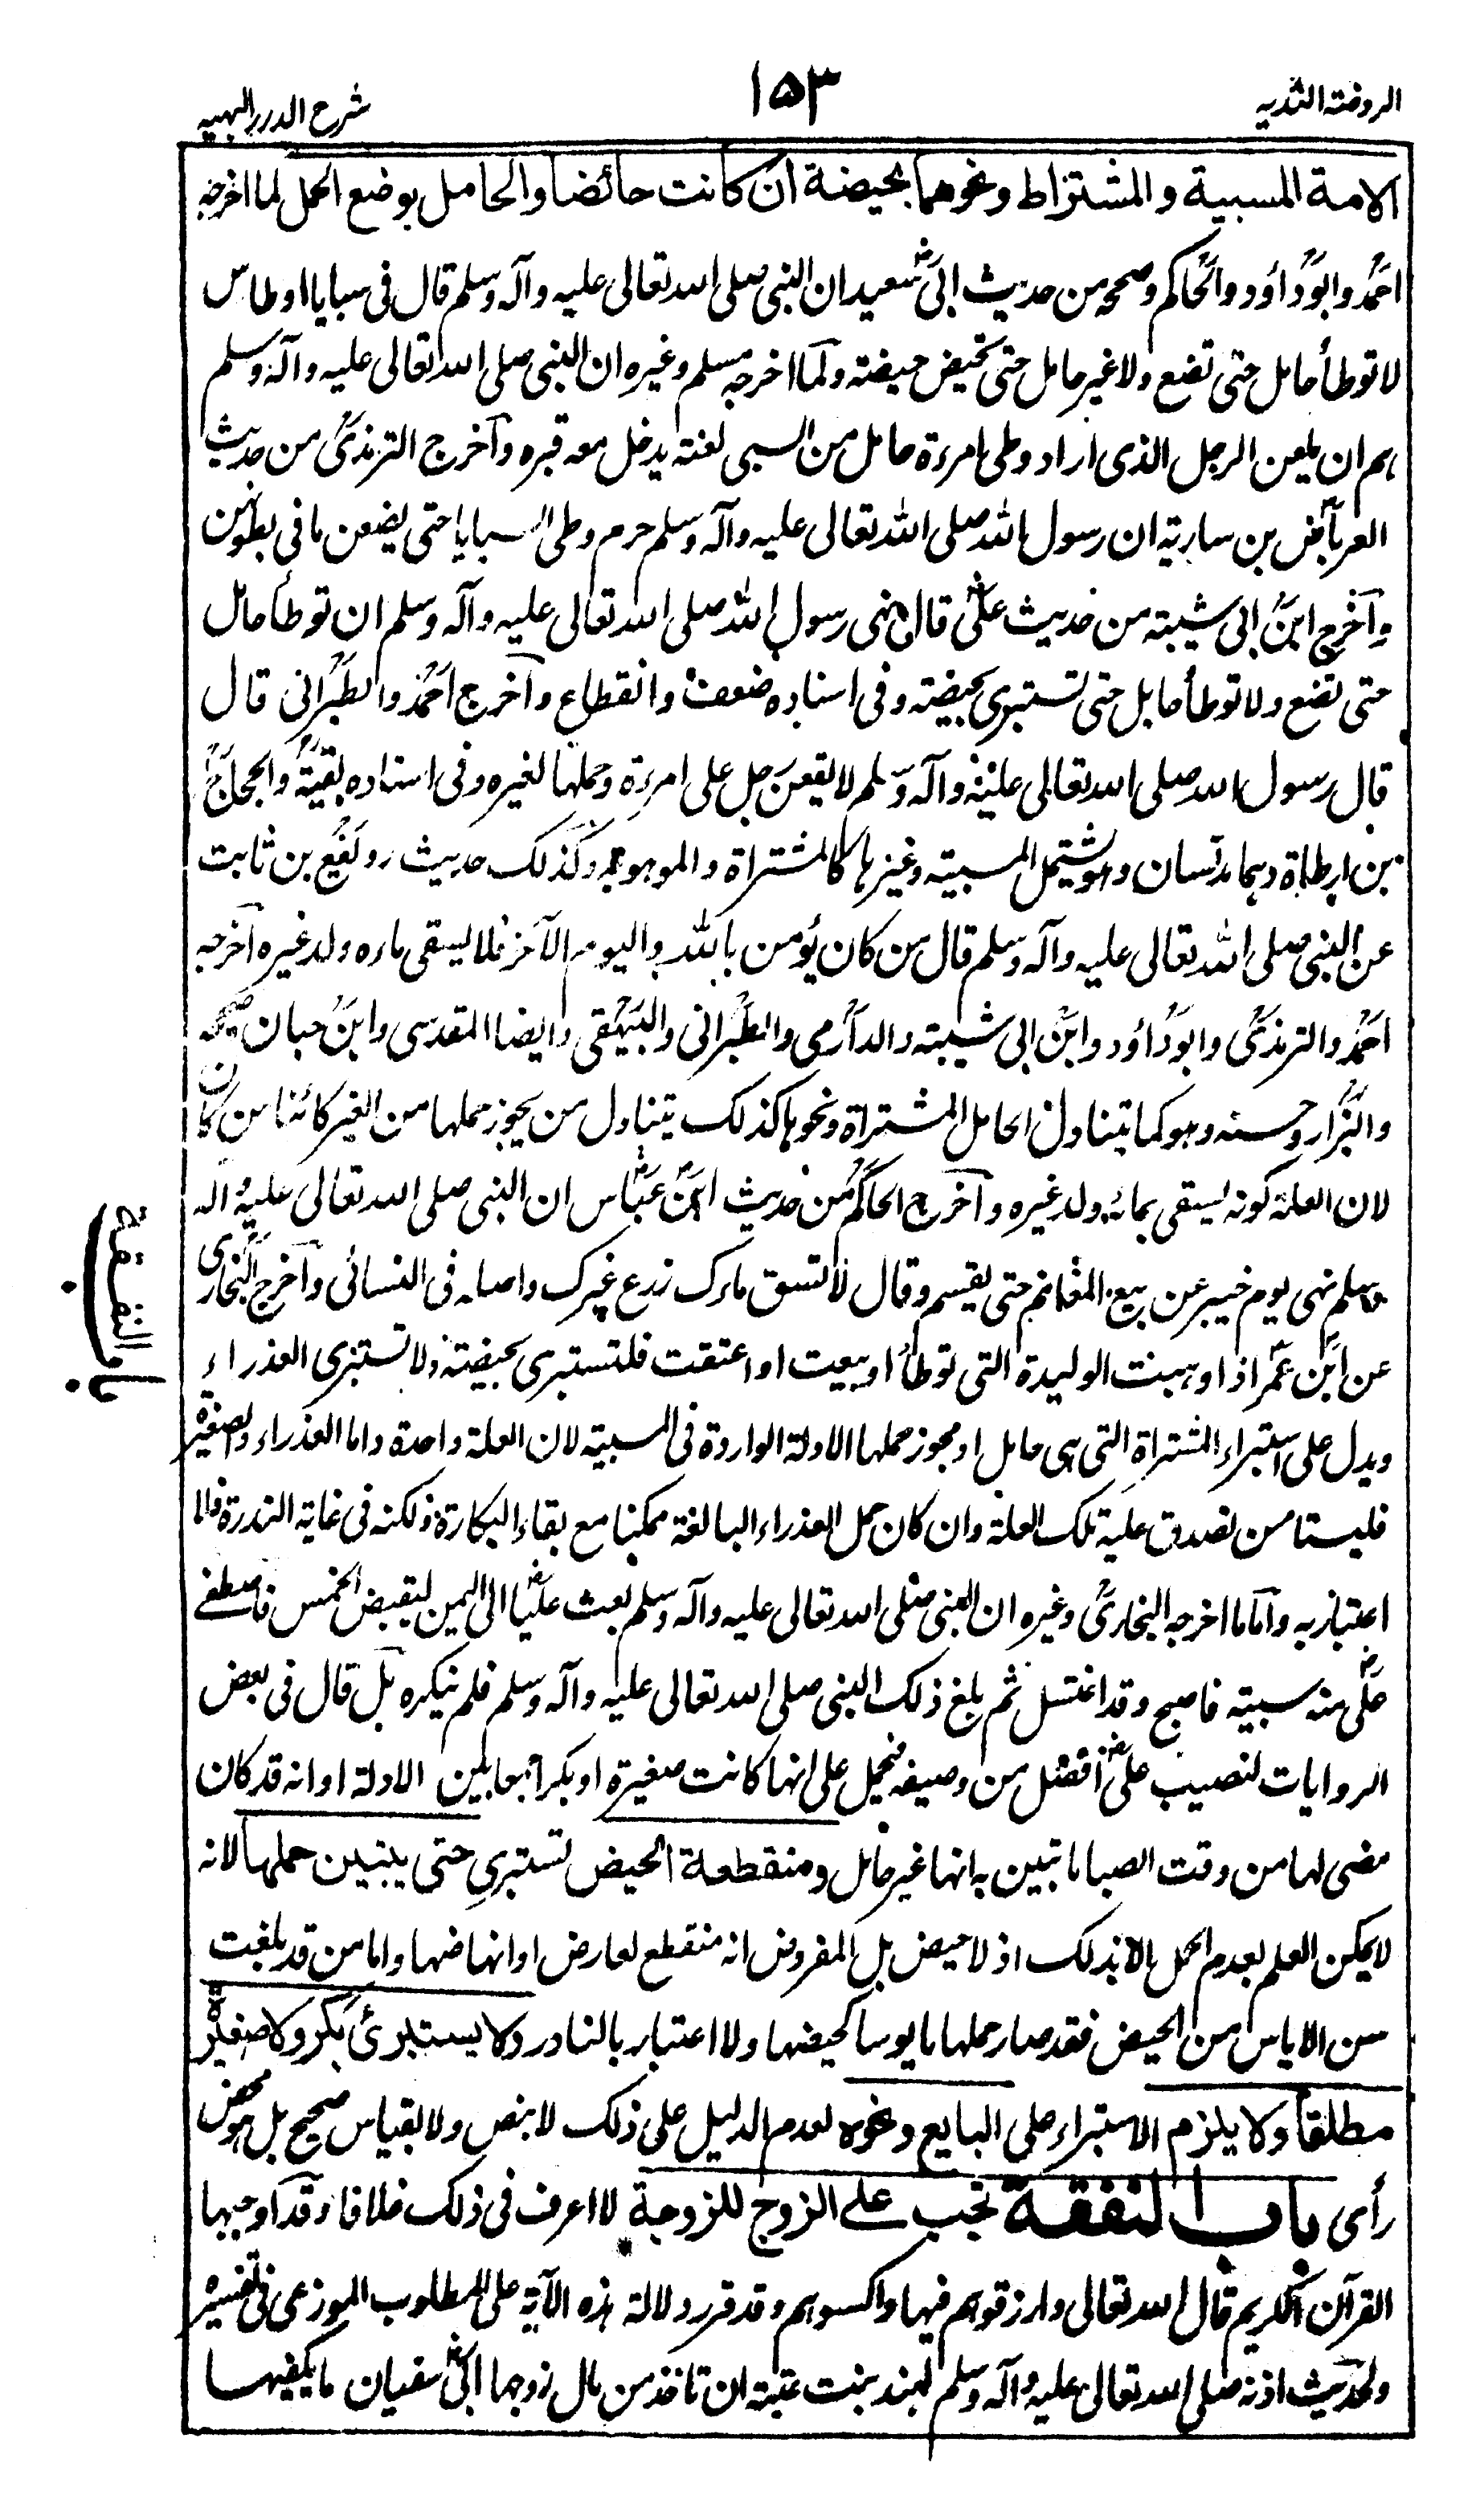 الروضة الندية
١٥٣
شرح الدرر البهية
الامة المسبية والمشتراة ونحوهما بحيضة ان كانت حائضا والحامل بوضع الحمل لما اخرجه
احمد وابوداود والحاكم وصححه من حديث ابى سعيد ان النبى صلى الله تعالى عليه وآله وسلم قال فى سبايا اوطاس
لا توطأ حامل حتى تضع ولا غير حامل حتى تحيض حيضة ولما اخرجه مسلم وغيره ان النبى صلى الله تعالى عليه وآله وسلم
هم ان يلعن الرجل الذى اراد وطى امرءة حامل من السبى لعنة يدخل معه قبره وآخرج الترمذى من حديث
العرباض بن سارية ان رسول الله صلى الله تعالى عليه وآله وسلم حرم وطى السبايا حتى يضعن ما فى بطونهن
وآخرج ابن ابى شيبة من حديث على قال نهى رسول الله صلى الله تعالى عليه وآله وسلم ان توطأ حامل
حتى تضع ولا توطأ حايل حتى تستبرى بحيضة وفى اسناده ضعف وانقطاع وآخرج احمد والطبرانى قال
قال رسول الله صلى الله تعالى عليه وآله وسلم لا يقعن رجل على امرءة وحملها لغيره وفى اسناده بقية والحجاج
بن ارطاة وهما مدلسان وهو يشتمل المسبية وغيرها كالمشتراة والموهوبة وكذلك حديث رويفع بن ثابت
عن النبى صلى الله تعالى عليه وآله وسلم قال من كان يؤمن بالله واليوم الآخر فلا يسقى ماءه ولد غيره آخرجه
احمد والترمذى وابوداود وابن ابى شيبة والدارمى والطبرانى والبيهقى وايضا المقدسى وابن حبان وصححه
والبزار وحسنه وهو كما يتناول الحامل المشتراة ونحوها كذلك يتناول من يجوز حملها من الغير كائنا من كان
لان العلة كونه يسقى بمائه ولد غيره وآخرج الحاكم من حديث ابن عباس ان النبى صلى الله تعالى عليه وآله
وسلم نهى يوم خيبر عن بيع المغانم حتى يقسم وقال لا تسق ماءك زرع غيرك واصله فى النسائى وآخرج البخارى
عن ابن عمر اذا وهبت الوليدة التى توطأ او بيعت او اعتقت فلتستبرى بحيضة ولا تستبرى العذراء
ويدل على استبراء المشتراة التى هى حامل او مجوز حملها الادلة الواردة فى المسبية لان العلة واحدة واما العذراء والصغيرة
فليستا من تصدق عليه تلك العلة وان كان حمل العذراء البالغة ممكنا مع بقاء البكارة ولكنه فى غاية الندرة فلا
اعتبار به وآما ما اخرجه البخارى وغيره ان النبى صلى الله تعالى عليه وآله وسلم بعث عليا الى اليمن ليقبض الخمس فاصطفى
على منه سبية فاصبح وقد اغتسل ثم بلغ ذلك النبى صلى الله تعالى عليه وآله وسلم فلم ينكره بل قال فى بعض
الروايات لنصيب على افضل من وصيفة فيحمل على انها كانت صغيرة او بكرا جمعا بين الادلة او انه قد كان
مضى لها من وقت الصبا ما تبين به انها غير حامل ومنقطعة الحيض تستبرى حتى يتبين حملها لانه
لا يمكن العلم بعدم الحمل الا بذلك اذ لا حيض بل المفروض انه منقطع لعارض او انها ضهيا واما من قد بلغت
سن الاياس من الحيض فقد صار حملها مايوسا كحيضها ولا اعتبار بالنادر ولا يستبرئ بكر ولا صغيرة
مطلقا ولا يلزم الاستبراء على البايع ونحوه لعدم الدليل على ذلك لا بنص ولا بقياس صحيح بل هو محض
رأى باب النفقة تجب على الزوج للزوجة لا اعرف فى ذلك خلافا وقد اوجبها
القرآن الكريم قال الله تعالى وارزقوهم فيها واكسوهم وقد قرر دلالة هذه الآية على المطلوب الموزعى فى تفسيره
ولحديث اذنه صلى الله تعالى عليه وآله وسلم لهند بنت عتبة ان تاخذ من مال زوجها ابى سفيان ما يكفيها
باب النفقة